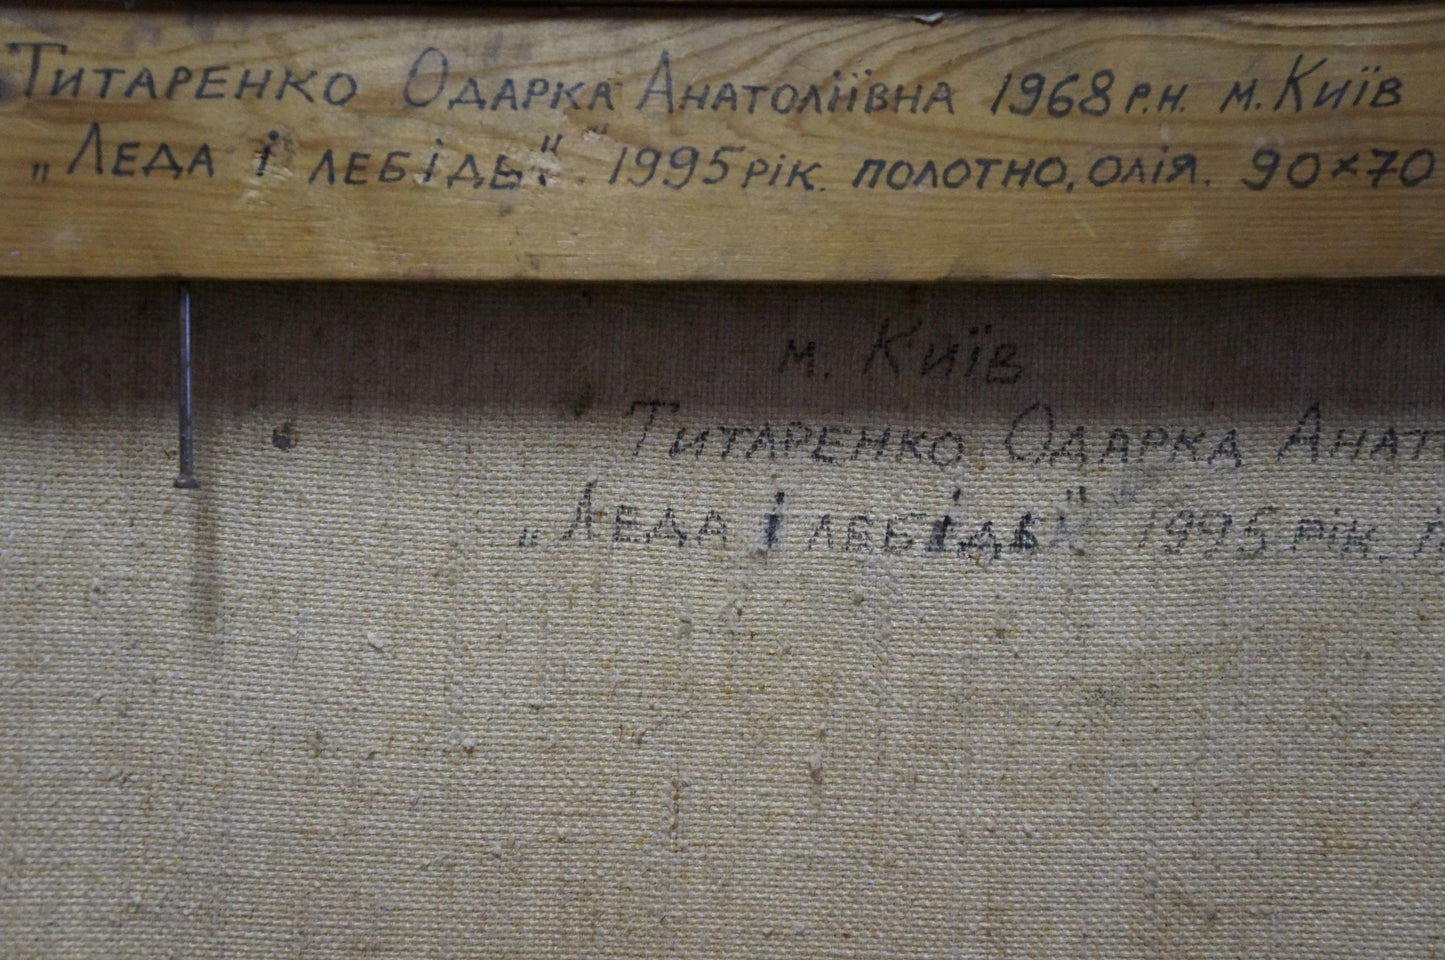 Титаренко Одарка Анатоліївна 1968 р.н. м. Київ
„Леда і лебідь". 1995 рік. полотно, олія. 90×70
м. Київ
Титаренко Одарка Анат
„Леда і лебідь" 1995 рік.